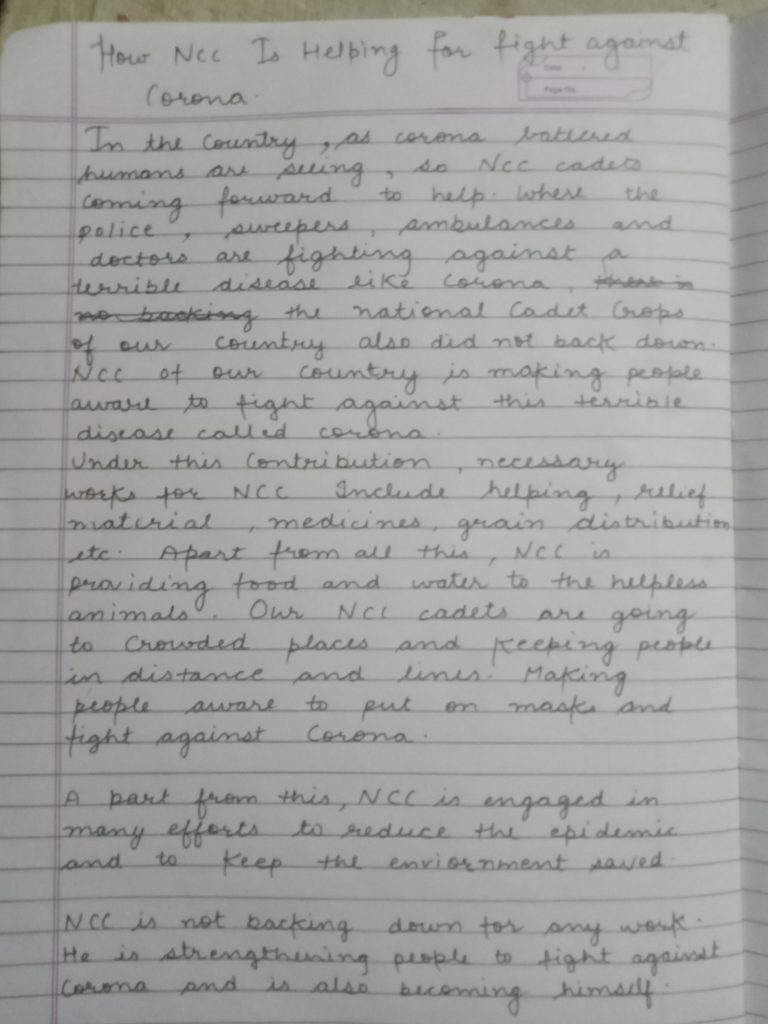 How NCC Is Helping for fight against
Corona.
Date
Page No.
In the country, as corona battered
humans are seeing, so NCC cadets
coming forward to help. Where the
police, sweepers, ambulances and
doctors are fighting against a
terrible disease like corona, there is
no backing the national Cadet Crops
of our country also did not back down.
NCC of our country is making people
aware to fight against this terrible
disease called corona.
Under this contribution, necessary
works for NCC Include helping, relief
material, medicines, grain distribution
etc. Apart from all this, NCC is
providing food and water to the helpless
animals. Our NCC cadets are going
to Crowded places and keeping people
in distance and lines. Making
people aware to put on masks and
fight against Corona.
A part from this, NCC is engaged in
many efforts to reduce the epidemic
and to keep the enviornment saved.
NCC is not backing down for any work.
He is strengthening people to fight against
Corona and is also becoming himself.